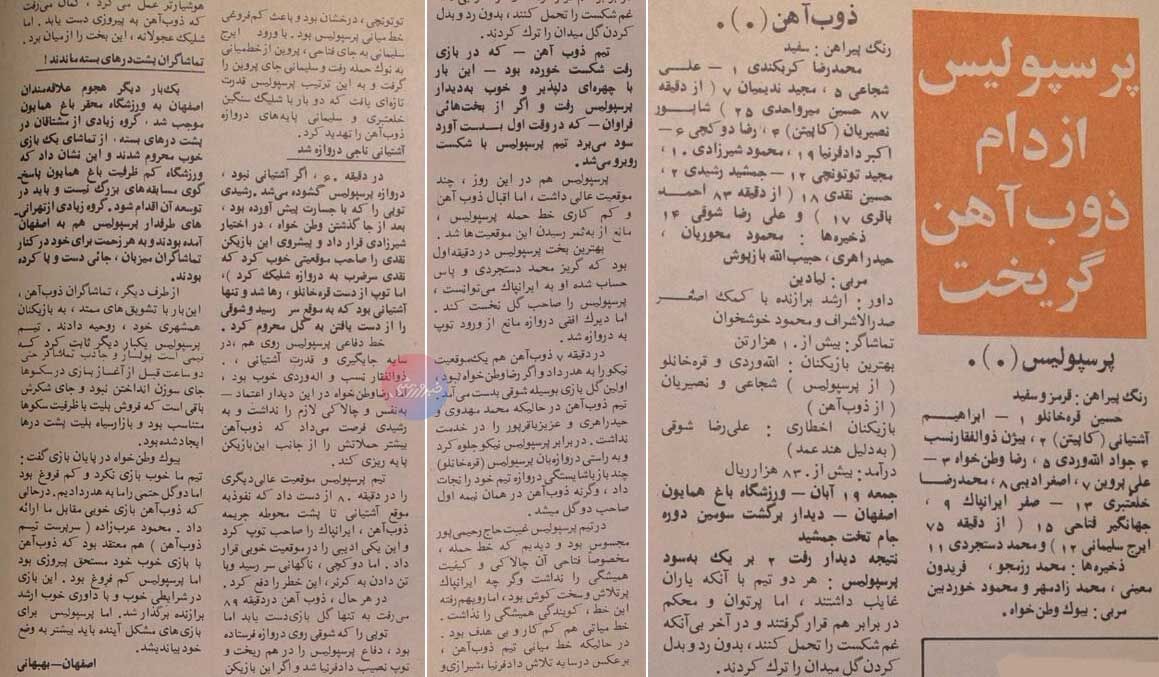 پرسپولیس
از دام
ذوب‌آهن
گریخت
پرسپولیس (۰)
رنگ پیراهن: قرمز و سفید
حسین قره‌خانلو ۱ – ابراهیم
آشتیانی (کاپیتن) ۲، بیژن ذوالفقارنسب
۴ جواد الله‌وردی ۵، رضا وطن‌خواه ۳ –
علی پروین ۷، اصغر ادیبی ۸، محمدرضا
خلعتبری ۱۳ – صفر ایرانپاک ۹،
جهانگیر فتاحی ۱۵ (از دقیقه ۷۵
ایرج سلیمانی ۱۲) و محمد دستجردی ۱۱
ذخیره‌ها: محمد رزمجو، فریدون
معینی، محمد زادمهر و محمود خوردبین
مربی: بیوک وطن‌خواه.
ذوب‌آهن (۰)
رنگ پیراهن: سفید
محمدرضا کربکندی ۱ – علی
شجاعی ۵، مجید ندیمیان ۷ (از دقیقه
۸۷ حسین میرواحدی ۲۵) شاپور
نصیریان (کاپیتن) ۴، رضا دوکچی ۶ –
اکبر دادفرنیا ۱۹، محمود شیرزادی ۱۰،
مجید توتونچی ۱۲ – جمشید رشیدی ۲،
حسین نقدی ۱۸ (از دقیقه ۸۳ احمد
باقری ۱۷) و علی رضا شوقی ۱۴
ذخیره‌ها: محمود محوریان،
حیدر اهری، حبیب‌الله بازپوش
مربی: لیادین
داور: ارشد برازنده با کمک اصغر
صدرالاشراف و محمود خوشخوان
تماشاگر: بیش از ۱۰ هزارتن
بهترین بازیکنان: الله‌وردی و قره‌خانلو
(از پرسپولیس) شجاعی و نصیریان
(از ذوب‌آهن)
بازیکنان اخطاری: علی‌رضا شوقی
(به‌دلیل هند عمد)
درآمد: بیش از ۸۳۰ هزار ریال
جمعه ۱۹ آبان – ورزشگاه باغ همایون
اصفهان – دیدار برگشت سومین دوره
جام تخت جمشید
نتیجه دیدار رفت ۲ بر یک به‌سود
پرسپولیس: هر دو تیم با آنکه یاران
غایب داشتند، اما پرتوان و محکم
در برابر هم قرار گرفتند و در آخر بی‌آنکه
غم شکست را تحمل کنند، بدون رد و بدل
کردن گل میدان را ترک کردند.
غم شکست را تحمل کنند، بدون رد و بدل
کردن گل میدان را ترک کردند.
تیم ذوب آهن – که در بازی
رفت شکست خورده بود – این بار
با چهره‌ای دلپذیر و خوب به‌دیدار
پرسپولیس رفت و اگر از بخت‌هائی
فراوان – که در وقت اول بدست آورد
سود می‌برد تیم پرسپولیس با شکست
روبرو می‌شد.
پرسپولیس هم در این روز، چند
موقعیت عالی داشت، اما اقبال ذوب آهن
و کم کاری خط حمله پرسپولیس،
مانع از به‌ثمر رسیدن این موقعیت‌ها شد.
بهترین بخت پرسپولیس در دقیقه اول
بود که گریز محمد دستجردی و پاس
حساب شده او به ایرانپاک می‌توانست،
پرسپولیس را صاحب گل نخست کند.
اما دیرک افقی دروازه مانع از ورود توپ
به دروازه شد.
در دقیقه ۷ ذوب‌آهن هم یک‌موقعیت
نیکو را به هدر داد و اگر رضا وطن‌خواه نبود،
اولین گل بازی بوسیله شوقی بدست می‌آمد.
تیم ذوب‌آهن در حالیکه محمد مهدوی و
حیدر اهری و عزیز باقرپور را در خدمت
نداشت. در برابر پرسپولیس نیکو جلوه کرد
و به راستی دروازه‌بان پرسپولیس (قره‌خانلو)
چند بار با شایستگی دروازه تیم خود را نجات
داد، وگرنه ذوب‌آهن در همان نیمه اول
صاحب دو گل میشد.
در تیم پرسپولیس غیبت حاج رحیمی‌پور
محسوس بود و دیدیم که خط حمله،
مخصوصا فتاحی آن چالاکی و کیفیت
همیشگی را نداشت وگر چه ایرانپاک
پرتلاش و سخت کوش بود، اما رویهم‌رفته
این خط، کوبندگی همیشگی را نداشت.
خط میانی هم کم کار و بی هدف بود.
در حالیکه خط میانی تیم ذوب‌آهن،
برعکس در سایه تلاش دادفرنیا، شیرزادی و
توتونچی، درخشان بود و باعث کم‌فروغی
خط میانی پرسپولیس بود. با ورود ایرج
سلیمانی به جای فتاحی، پروین از خط میانی
به نوک حمله رفت و سلیمانی جای پروین را
گرفت و به این ترتیب پرسپولیس قدرت
تازه‌ای یافت که دو بار با شلیک سنگین
خلعتبری و سلیمانی پایه‌های دروازه
ذوب‌آهن را تهدید کرد.
آشتیانی ناجی دروازه شد
در دقیقه ۶۰، اگر آشتیانی نبود،
دروازه پرسپولیس گشوده می‌شد. رشیدی
توپی را که با جسارت پیش آورده بود،
بعد از جا گذشتن وطن خواه، در اختیار
شیرزادی قرار داد و پیشروی این بازیکن
نقدی را صاحب موقعیتی خوب کرد که
نقدی سرضرب به دروازه شلیک کرد)،
اما توپ از دست قره‌خانلو، رها شد و تنها
آشتیانی بود که به موقع سر رسید و شوقی
را از دست یافتن به گل محروم کرد.
خط دفاعی پرسپولیس روی هم، در
سایه جایگیری و قدرت آشتیانی،
ذوالفقار نسب و اله‌وردی خوب بود،
اما رضا وطن‌خواه در این دیدار اعتماد –
به‌نفس و چالاکی لازم را نداشت و به
رشیدی فرصت می‌داد که ذوب‌آهن
بیشتر حملاتش را از جانب این‌بازیکن
پایه ریزی کند.
تیم پرسپولیس موقعیت عالی‌دیگری
را در دقیقه ۸۰ از دست داد که نفوذ به
موقع آشتیانی تا پشت محوطه جریمه
ذوب‌آهن، ایرانپاک را صاحب توپ کرد
و این یکی ادیبی را در موقعیت خوبی قرار
داد. اما دوکچی، ناگهانی سر رسید و با
تن دادن به کرنر، این خطر را دفع کرد.
در هر حال، ذوب آهن در دقیقه ۸۹
می‌رفت به تنها گل بازی‌دست یابد اما
توپی را که شوقی روی دروازه فرستاده
بود، دفاع پرسپولیس را در هم ریخت و
توپ نصیب دادفرنیا شد و اگر این بازیکن
هوشیارتر عمل می کرد، گمان می‌رفت
که ذوب‌آهن به پیروزی دست یابد. اما
شلیک عجولانه، این بخت را از میان برد.
تماشاگران پشت درهای بسته ماندند!
یک‌بار دیگر هجوم علاقه‌مندان
اصفهان به ورزشگاه محقر باغ همایون
موجب شد، گروه زیادی از مشتاقان در
پشت درهای بسته، از تماشای یک بازی
خوب محروم شدند و این نشان داد که
ورزشگاه کم ظرفیت باغ همایون پاسخ‌
گوی مسابقه‌های بزرگ نیست و باید در
توسعه آن اقدام شود. گروه زیادی از تهرانی‌
های طرفدار پرسپولیس هم به اصفهان
آمده بودند و به هر زحمت برای خود در کنار
تماشاگران میزبان، جائی دست و پا کرده
بودند.
از طرف دیگر، تماشاگران ذوب‌آهن،
این‌بار با تشویق‌های ممتد، به بازیکنان
همشهری خود، روحیه دادند. تیم
پرسپولیس یکبار دیگر ثابت کرد که
تیمی است پولساز و جاذب تماشاگر حتی
دو ساعت قبل از آغاز بازی در سکوها
جای سوزن انداختن نبود و جای شکرش
باقی است که فروش بلیت با ظرفیت سکوها
متناسب بود و بازار سیاه بلیت پشت درها
ایجاد شده بود.
بیوک وطن‌خواه در پایان بازی گفت:
تیم ما خوب بازی نکرد و کم فروغ بود
اما دو گل حتمی را ما به هدر دادیم. در حالی
که ذوب‌آهن بازی خوبی مقابل ما ارائه
داد. محمود عرب‌زاده (سرپرست تیم
ذوب‌آهن) هم معتقد بود که ذوب‌آهن
با بازی خوب خود مستحق پیروزی بود
اما پرسپولیس کم فروغ بود. این بازی
در شرایطی خوب و با داوری خوب ارشد
برازنده برگذار شد. اما پرسپولیس برای
بازی‌های مشکل آینده باید بیشتر به وضع
خود بیاندیشد.
اصفهان – بهبهانی